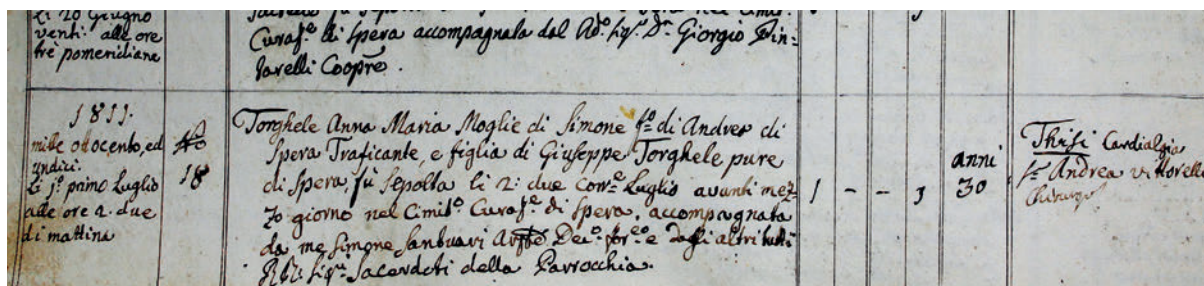 Li 20 Giugno
venti alle ore
trè pomeridiane
Curaz.e di Spera accompagnata dal Rdo. Sigr. Dn. Giorgio Pin=
tarelli Coopre.
1811.
mille ottocento, ed
undici.
Li 1º primo Luglio
alle ore 2. due
di mattina
18
Torghele Anna Maria Moglie di Simone fº di Andrea di
Spera Traficante, e figlia di Giuseppe Torghele pure
di Spera, fù sepolta li 2: due Corre. Luglio avanti mez=
zo giorno nel Cimitº. Curaz.e di Spera, accompagnata
da me Simone Santuari Dec.º e dagli altri tutti
Sacerdoti della Parrocchia.
1 - - 1
anni
30
Thisi Cardialgia
Andrea Vittorelli
Chirurgo